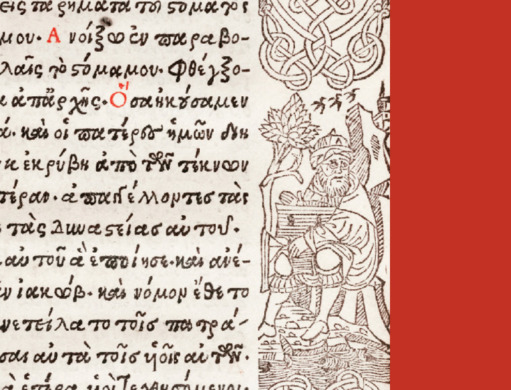 εἰς τὰ ῥήματα τοῦ στόματός
μου. Ἀνοίξω ἐν παραβο-
λαῖς τὸ στόμα μου. Φθέγξο-
ἀπαρχῆς. Ὅσα ἠκούσαμεν
καὶ οἱ πατέρες ἡμῶν διη
κ ἐκρύβη ἀπὸ τῶν τέκνων
τέραν. ἀπαγγέλλοντες τὰς
τὰς δυναστείας αὐτοῦ.
αὐτοῦ ἃ ἐποίησε. καὶ ἀνέ-
ν ἰακώβ. καὶ νόμον ἔθετο
νετείλατο τοῖς πατρά-
σαι αὐτὰ τοῖς υἱοῖς αὐτῶν.
ἑτέρα. υἱοὶ τεχθησόμενοι.